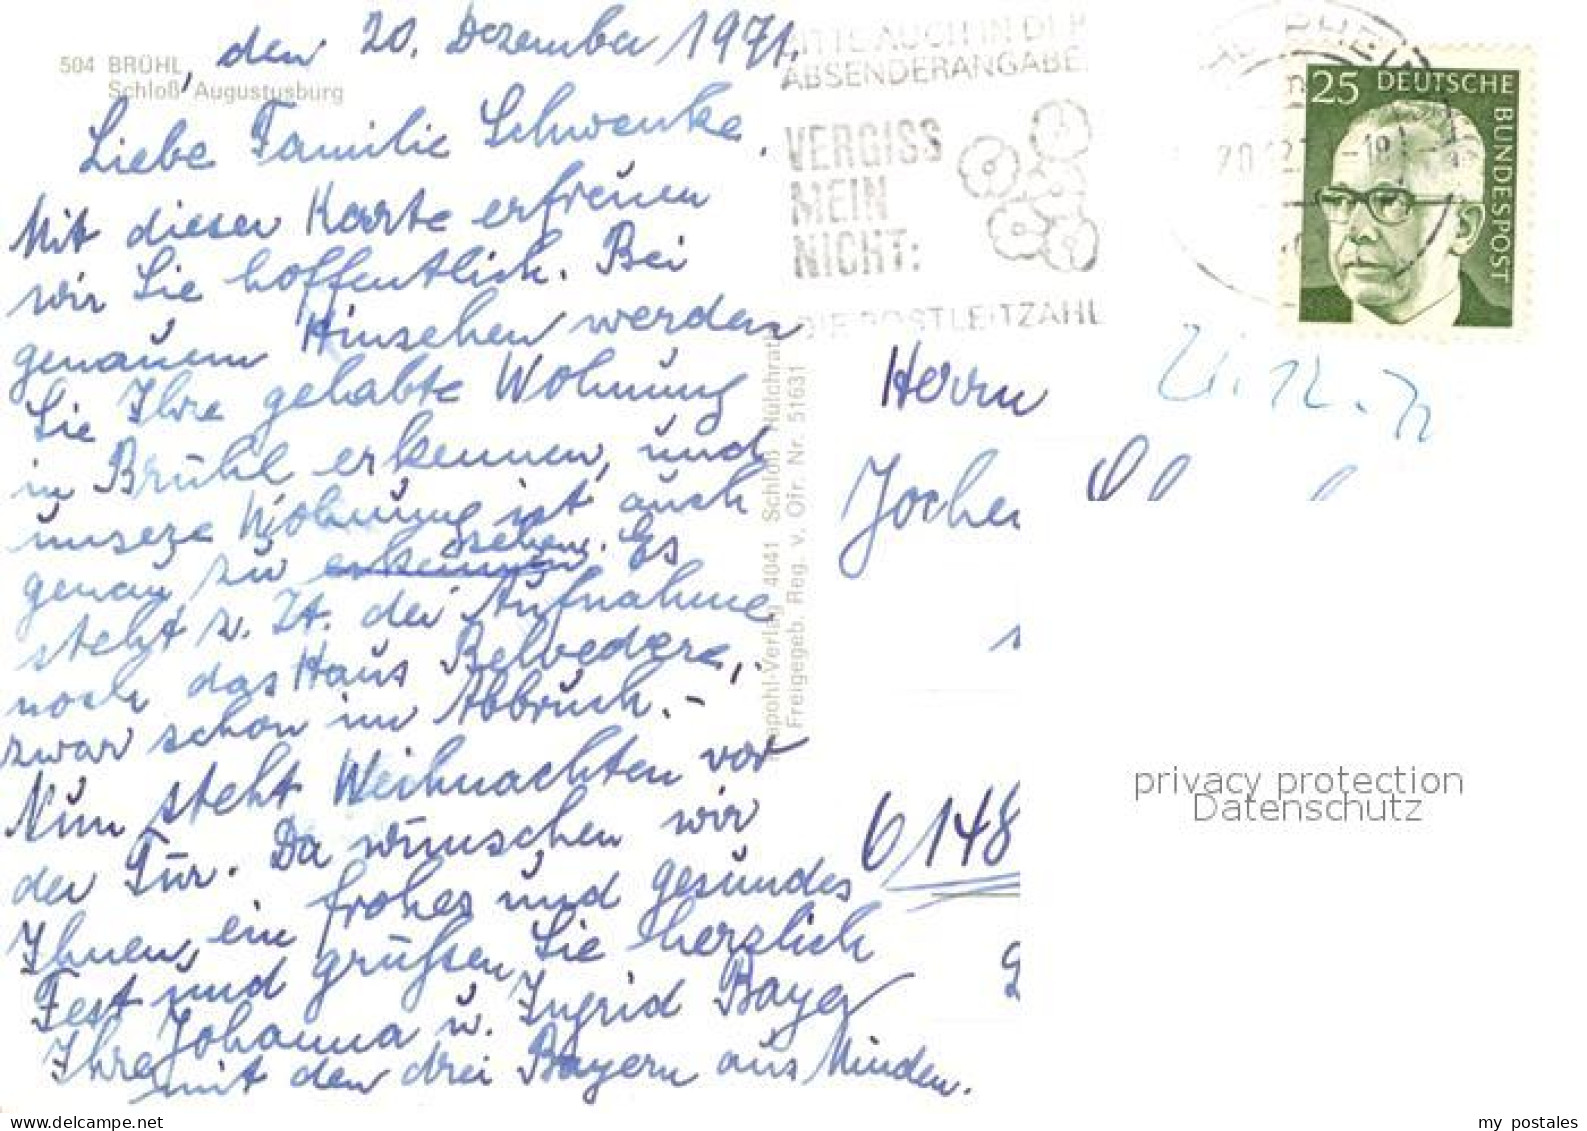 504 BRÜHL
Schloß Augustusburg
, den 20. Dezember 1971.
Liebe Familie Schwenke,
Mit dieser Karte erfreuen
wir Sie hoffentlich. Bei
genauem Hinsehen werden
Sie Ihre gehabte Wohnung
in Brühl erkennen, und
unsere Wohnung ist auch
genau zu erkennen sehen. Es
steht z. Zt. der Aufnahme
noch das Haus Belvedere,
zwar schon im Abbruch. -
Nun steht Weihnachten vor
der Tür. Da wünschen wir
Ihnen, ein frohes und gesundes
Fest und grüßen Sie herzlich
Ihre Johanna u. Ingrid Bayer
mit den drei Bayern aus Minden.
BITTE AUCH IN DER
ABSENDERANGABE
VERGISS
MEIN
NICHT:
DIE POSTLEITZAHL
25 DEUTSCHE
BUNDESPOST
-Verlag 4041 Schloß Hülchrath
Freigegeb. Reg. v. Ofr. Nr. 51631
Herrn
21.12.71
Joche
6148
privacy protection
Datenschutz
www.delcampe.net
my_postales